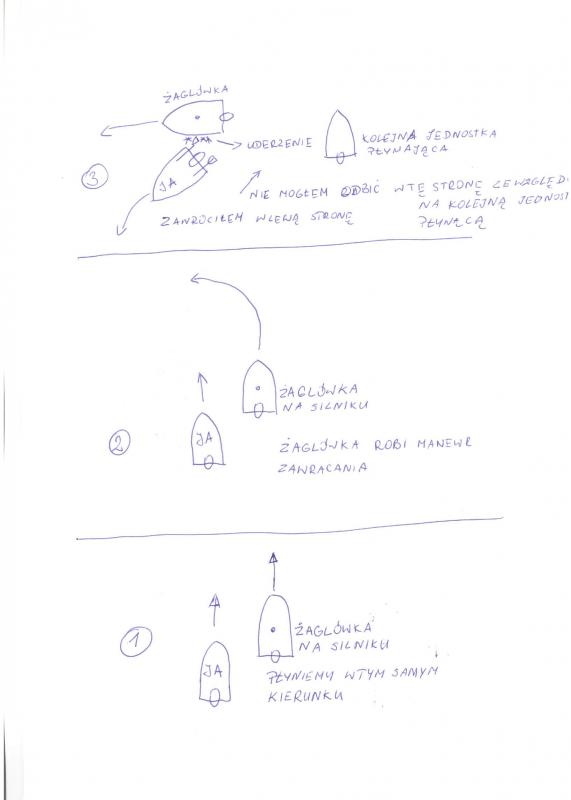 ŻAGLÓWKA
UDERZENIE
KOLEJNA JEDNOSTKA
PŁYNAJĄCA
JA
3
NIE MOGŁEM ODBIĆ W TĘ STRONĘ ZE WZGLĘD
NA KOLEJNĄ JEDNOST
PŁYNĄCĄ
ZAWRÓCIŁEM W LEWĄ STRONĘ
ŻAGLÓWKA
NA SILNIKU
JA
2
ŻAGLÓWKA ROBI MANEWR
ZAWRACANIA
1
ŻAGLÓWKA
NA SILNIKU
JA
PŁYNIEMY W TYM SAMYM
KIERUNKU